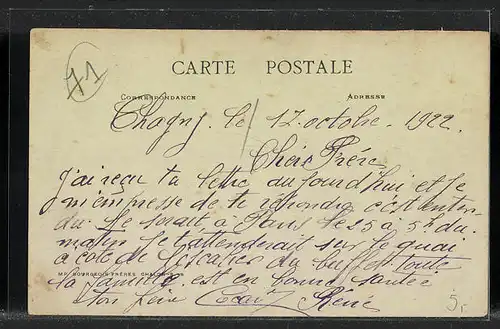 71
CARTE POSTALE
CORRESPONDANCE
ADRESSE
Chagny le 17 octobre 1922.
Chère Frère
j'ai reçu ta lettre aujourd'hui et je
m'empresse de te répondre c'est enten-
du. Je serait à Paris le 25 à 5h du
matin je t'attendrait sur le quai
a coté de l'escalier du buffet. Toute
IMP. BOURGEOIS FRÈRES CHALON-S-S
la famille est en bonne santée
ton frère René
5.